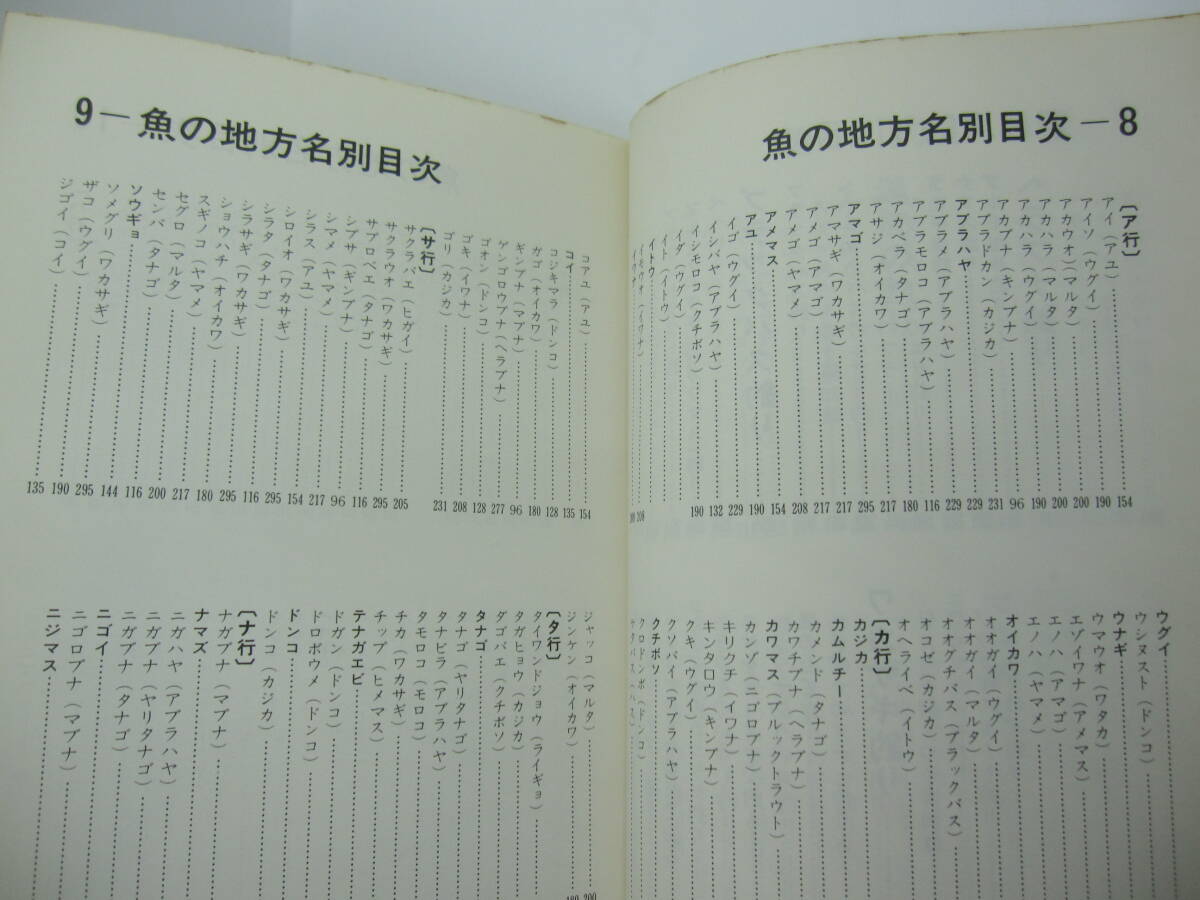 魚の地方名別目次－8
〔ア行〕
アイ（アユ）154
アイソ（ウグイ）190
アカウオ（マルタ）200
アカハラ（マルタ）200
アカハラ（ウグイ）190
アカブナ（キンブナ）96
アブラドカン（カジカ）231
アブラハヤ229
アブラメ（アブラハヤ）229
アブラモロコ（アブラハヤ）229
アカベラ（タナゴ）116
アサジ（オイカワ）180
アマゴ217
アマサギ（ワカサギ）295
アメゴ（アマゴ）217
アメゴ（ヤマメ）217
アメマス208
アユ154
イゴ（ウグイ）190
イシバヤ（アブラハヤ）229
イシモロコ（クチボソ）132
イダ（ウグイ）190
イト（イトウ）
イトウ
ウグイ
ウシヌスト（ドンコ）
ウナギ
ウマウオ（ワタカ）
エゾイワナ（アメマス）
エノハ（アマゴ）
エノハ（ヤマメ）
オイカワ
オオガイ（ウグイ）
オオガイ（マルタ）
オオグチバス（ブラックバス）
オコゼ（カジカ）
オヘライベ（イトウ）
〔カ行〕
カジカ
カムルチー
カメンド（タナゴ）
カワチブナ（ヘラブナ）
カワマス（ブルックトラウト）
カンゾ（ニゴロブナ）
キリクチ（イワナ）
キンタロウ（キンブナ）
クキ（ウグイ）
クソバイ（アブラハヤ）
クチボソ
クロドンボ（ドンコ）
9－魚の地方名別目次
コアユ（アユ）154
コイ135
コジキマラ（ドンコ）128
ガゴ（オイカワ）180
ギンブナ（マブナ）96
ゲンゴロウブナ（ヘラブナ）277
ゴオン（ドンコ）128
ゴキ（イワナ）208
ゴリ（カジカ）231
〔サ行〕
サクラバエ（ヒガイ）205
サクラウオ（ワカサギ）295
サブロベエ（タナゴ）116
シブサ（ギンブナ）96
シマメ（ヤマメ）217
シラス（アユ）154
シロイオ（ワカサギ）295
シラタ（タナゴ）116
シラサギ（ワカサギ）295
ショウハチ（オイカワ）180
スギノコ（ヤマメ）217
セグロ（マルタ）200
センバ（タナゴ）116
ソウギョ144
ソメグリ（ワカサギ）295
ザコ（ウグイ）190
ジゴイ（コイ）135
ジャッコ（マルタ）200
ジンケン（オイカワ）180
〔タ行〕
タイワンドジョウ（ライギョ）
タガヒョウ（カジカ）
ダゴバエ（クチボソ）
タナゴ
タナゴ（ヤリタナゴ）
タナビラ（アブラハヤ）
タモロコ（モロコ）
チカ（ワカサギ）
チップ（ヒメマス）
テナガエビ
ドガン（ドンコ）
ドロボウメ（ドンコ）
ドンコ
ドンコ（カジカ）
〔ナ行〕
ナガブナ（マブナ）
ナマズ
ニガハヤ（アブラハヤ）
ニガブナ（ヤリタナゴ）
ニガブナ（タナゴ）
ニゴイ
ニゴロブナ（マブナ）
ニジマス